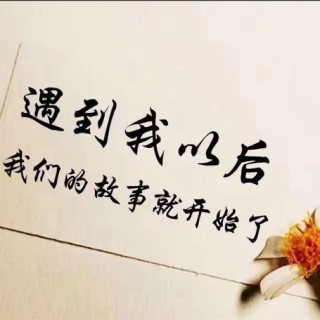 遇到我以后
我们的故事就开始了